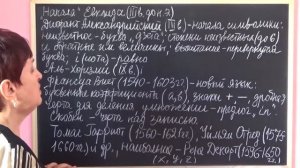 "Начала" Евклида (III в. до н.э)
Диофант Александрийский (III в.) - начала символики:
неизвестное - буква, степени неизвестных (до 6)
и обратные им величины, вычитание - перевернутая
буква; i (иота) - равно
Аль-Хорезми (IX в.)
Франсуа Виет (1540-1603 гг) - новый язык:
буквенные коэффициенты (а, в), знаки +, -, дробная
черта для деления, умножение - предлог "in"
Скобки - черта над записью
Томас Гарриот (1560-1621 гг.), Уильям Отред (1575
1660 гг.) и др., наконец - Рене Декарт (1596-1650
(x, y, z) гг.)